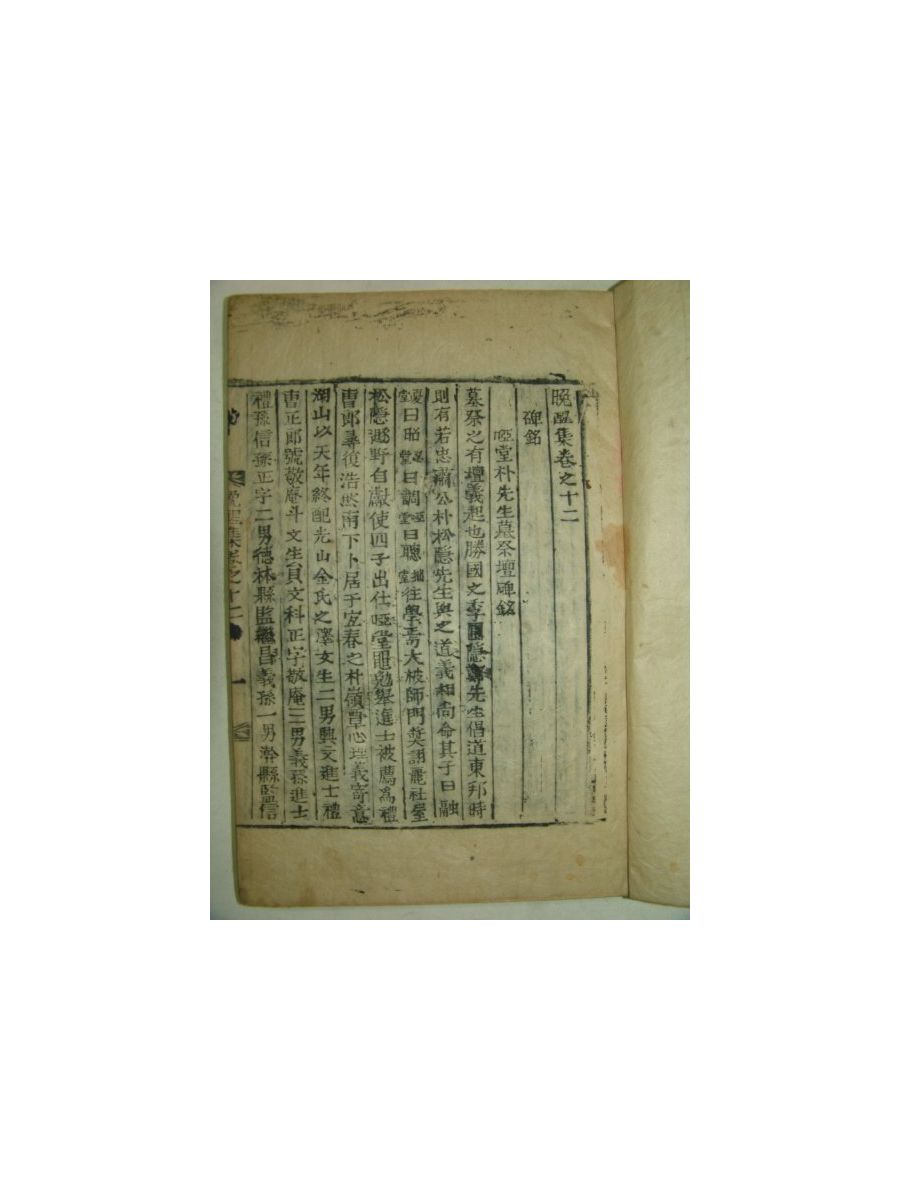 晩醒集卷之十二
碑銘
啞堂朴先生墓祭壇碑銘
墓祭之有壇義起也勝國之季圃隱鄭先生倡道東邦時
則有若忠肅公朴松隱先生與之道義相尙命其子曰融
憂堂曰昭忍堂曰調啞堂曰聰拙堂往學焉大被師門奬詡麗社屋
松隱遯野自獻使四子出仕啞堂黽勉擧進士被薦爲禮
曺郎尋復浩然南下卜居于宜春之朴嶺草心理義寄意
湖山以天年終配光山金氏之澤女生二男興文進士禮
曺正郎號敬庵斗文生員文科正字敬庵三男義孫進士
禮孫信孫正字二男德林縣監繼昌義孫一男瀚縣監信
晩醒集卷之十二
一